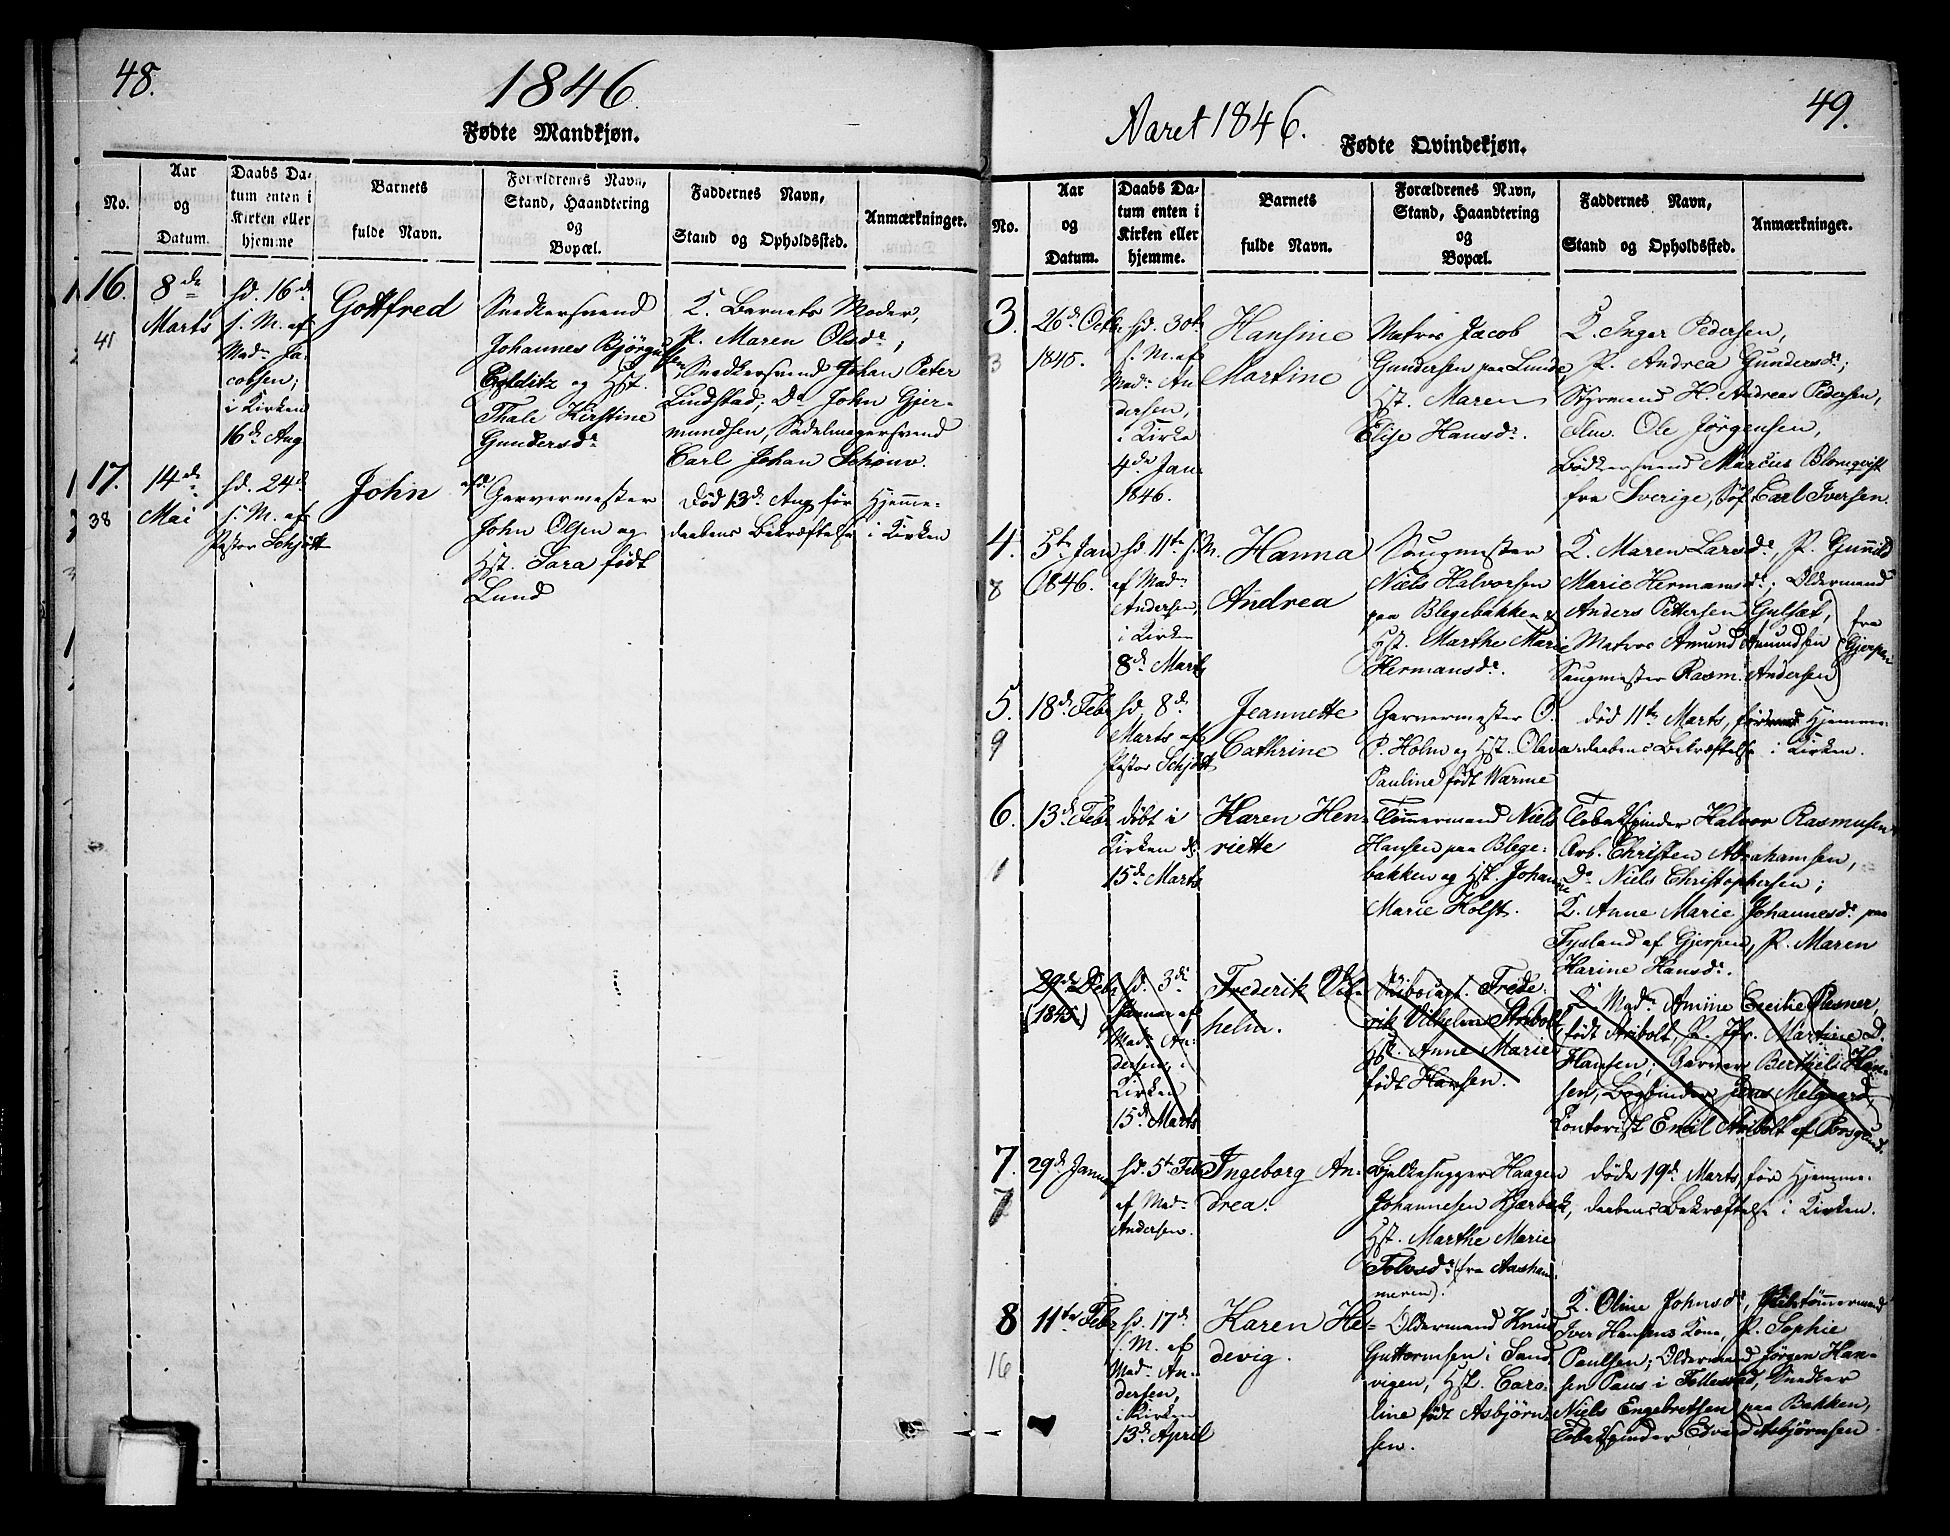 48.
1846
Fødte Mandkjøn.
No.
Aar
og
Datum.
Daabs Da-
tum enten i
Kirken eller
hjemme
Barnets
fulde Navn.
Forældrenes Navn,
Stand, Haandtering
og
Bopæl.
Faddernes Navn,
Stand og Opholdssted.
Anmærkninger.
16.
41
8de
Marts
hd. 16d
s. M. af
Madm Ja-
cobsen;
i Kirken
16d Aug
Gottfred
Snedkersvend
Johannes Bjørgu
Colditz og Hst.
Thale Kirstine
Gundersdr
K. Barnets Moder,
P. Maren Olsdr;
Snedkersvend Johan Peter
Lindstad; Do John Gjer-
mundsen, Sadelmagersvend
Carl Johan
17.
38
14de
Mai
hd. 24d
s. M. af
Pastor Schjøtt
John
Garvermester
John Olsen og
Hst. Sara født
Lund
Død 13d Aug. før Hjemme-
daabens Bekræftelse i Kirken
49.
Aaret 1846.
Fødte Qvindekjøn.
No.
Aar
og
Datum.
Daabs Da-
tum enten i
Kirken eller
hjemme.
Barnets
fulde Navn.
Forældrenes Navn,
Stand, Haandtering
og
Bopæl.
Faddernes Navn,
Stand og Opholdssted.
Anmærkninger.
3.
3
26d Octbr
1845.
hd. 30te
s. M. af
Madm An
dersen,
i Kirke
4de Jan
1846.
Hansine
Martine
Matros Jacob
Gundersen paa Lunde
Hst. Maren
Elise Hansdr.
K. Inger Pedersen,
P. Andrea Gundersdr;
Styrmand H. Andreas Pedersen,
Ole Jørgensen,
Bødkersvend Marcus Blomqvist
fra Sverige, Søf. Carl Iversen.
4.
8
5te Jan
1846.
hd 11te s. M.
af Madm
Andersen,
i Kirken
8d Marts
Hanna
Andrea
Saugmester
Niels Halvorsen
paa Blegebakken &
Hst. Marthe Marie
Hermansdr.
K. Maren Larsdr, P. Gunnild
Marie Hermansdr; Oldermand
Anders Pettersen Gulset,
Matros Amund Amundsen
Saugmester Rasm. Andersen
fra
Gjerpen
5.
9
18d Febr
hd. 8d
Marts af
Pastor Schjøtt
Jeannette
Cathrine
Garvermester O.
P. Holm og Hst. Olava
Pauline født Warme
død 11te Marts, før Hjemme-
daabens Bekræftelse i Kirken.
6.
1
13d Febr
døbt i
Kirken d.
15d Marts
Karen Hen-
riette
Tømmermand Niels
Hansen paa Blege-
bakken og Hst. Johanne
Marie Holst.
Tobakspinder Halvor Rasmusen
Arb. Christen Abrahamsen,
Do Niels Christophersen;
K. Anne Marie Johannesdr paa
Fysland af Gjerpen, P. Maren
Karine Hansdr.
29de Debr
(1845)
hd. 3di
Januar af
Madm An-
dersen, i
Kirken
15d Marts
Frederik Vil-
helm.
Frede-
rik Vilhelm Aribolt
Hst. Anne Marie
født Hansen.
K. Madm Amine Cecilie Plesner,
født Aribolt, P. Jfr. Martine D.
Hansen; Garver Berthel Han-
sen, Bogbinder Jens Melgaard,
Kontorist Emil Aribolt af Porsgrund.
7.
7
29d Januar
hd. 5te Feb
af Madm
Andersen.
Ingeborg An-
drea.
Bjelkehugger Haagen
Johannesen Kjærbæk,
Hst. Marthe Marie
Tolvsdr (fra Aasham-
meren).
døde 19d Marts, før Hjemme-
daabens Bekræftelse i Kirken.
8
16
11te Febr
hd. 17d
s. M. af
Madm An-
dersen,
i Kirken
13d April
Karen He-
devig.
Oldermand Knud
Guttormsen i Sand-
vigen, Hst. Caro-
line født Asbjørn-
sen.
K. Oline Johnsdr, tømmermand
Iver Hansens Kone, P. Sophie
Paulsen; Oldermand Jørgen Han-
sen Paus i Follestad, Snedker
Niels Engebretsen paa Bakken,
Tobakspinder Edvard Asbjørnsen